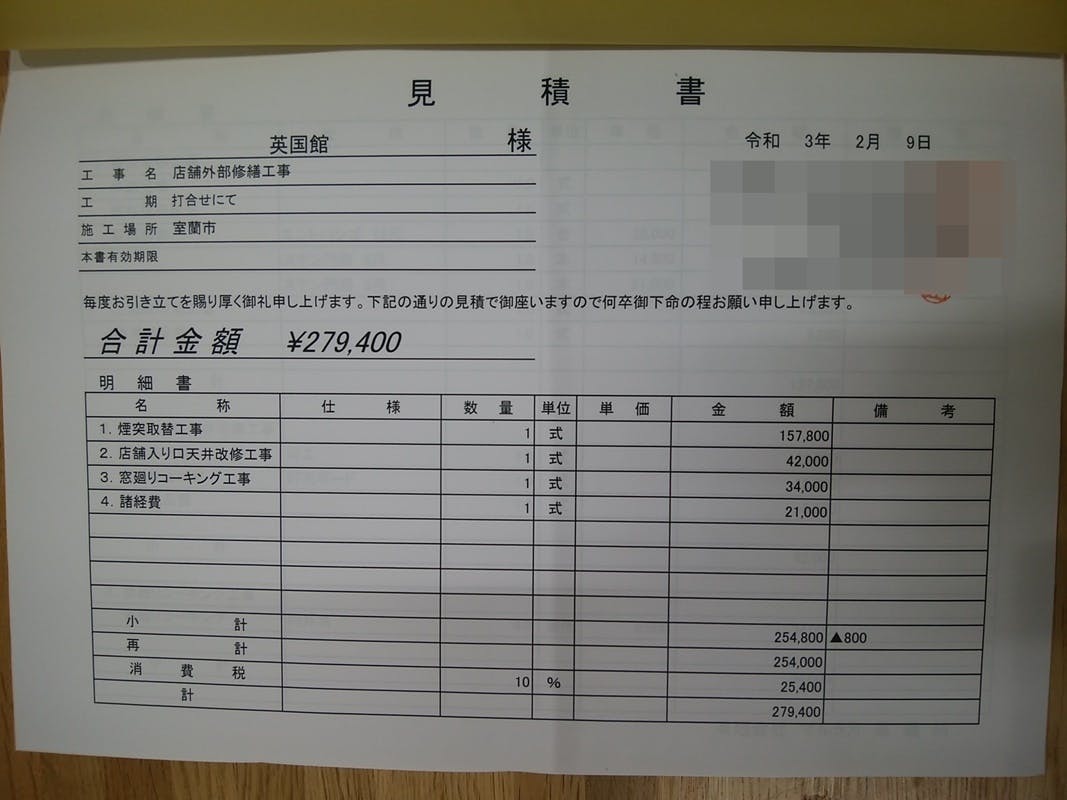 見 積 書
英国館 様
令和 3年 2月 9日
工 事 名 店舗外部修繕工事
工 期 打合せにて
施 工 場 所 室蘭市
本書有効期限
毎度お引き立てを賜り厚く御礼申し上げます。下記の通りの見積で御座いますので何卒御下命の程お願い申し上げます。
合計金額 ¥279,400
明 細 書
名 称 仕 様 数 量 単位 単 価 金 額 備 考
1. 煙突取替工事 1 式 157,800
2. 店舗入り口天井改修工事 1 式 42,000
3. 窓廻りコーキング工事 1 式 34,000
4. 諸経費 1 式 21,000
小 計 254,800 ▲800
再 計 254,000
消 費 税 10 % 25,400
計 279,400